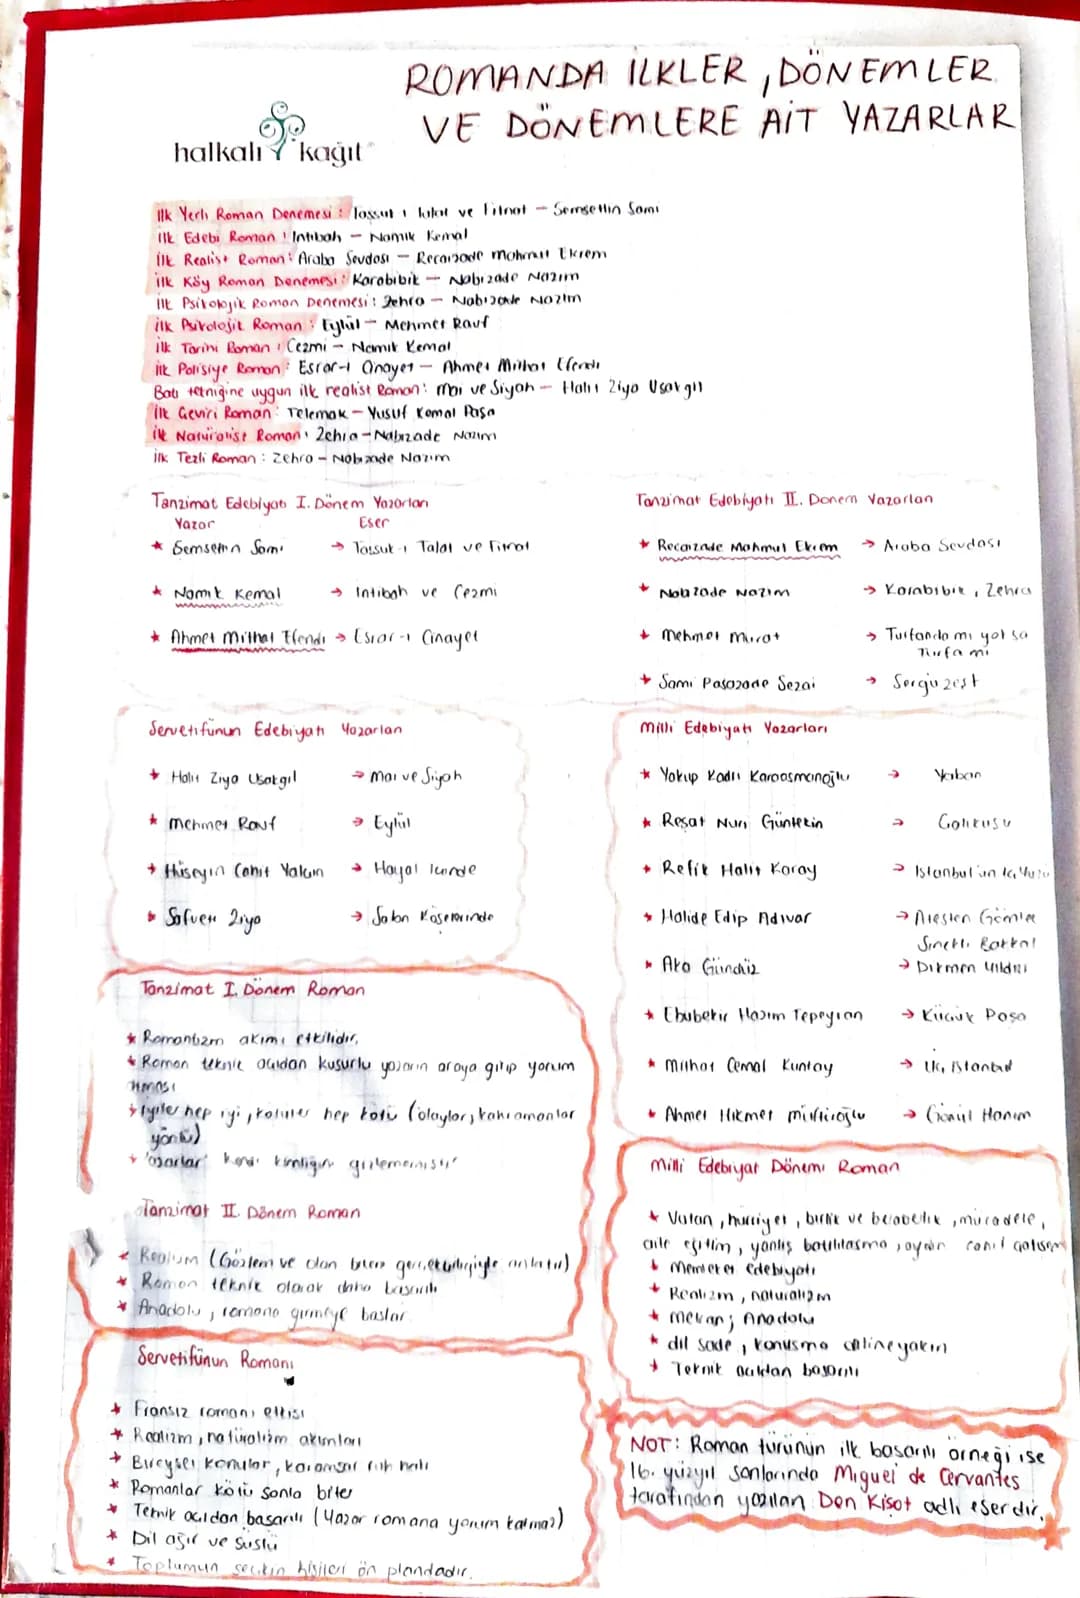 ROMANDA İLKLER, DÖNEMLER
VE DÖNEMLERE AİT YAZARLAR
halkalı kağıt
İlk Yerli Roman Denemesi: Taşşuk ı talat ve Fitnat - Şemsettin Sami
İlk Edebi Roman: İntibah - Namık Kemal
İlk Realist Roman: Araba Sevdası - Recaizade Mahmut Ekrem
İlk Köy Roman Denemesi: Karabibik - Nabizade Nazım
İlk Psikolojik Roman Denemesi: Zehra - Nabizade Nazım
İlk Psikolojik Roman: Eylül - Mehmet Rauf
İlk Tarihi Roman: Cezmi - Namık Kemal
İlk Polisiye Roman: Esrar-ı Cinayet - Ahmet Mithat Efendi
Batı tekniğine uygun ilk realist Roman: Mai ve Siyah - Halit Ziya Uşaklıgil
İlk Çeviri Roman: Telemak - Yusuf Kamal Paşa
İlk Natüralist Roman: Zehra - Nabizade Nazım
İlk Tezli Roman: Zehra - Nabizade Nazım
Tanzimat Edebiyatı I. Dönem Yazarları
Yazar Eser
* Şemsettin Sami → Taşşuk-ı Talat ve Fitnat
* Namık Kemal → İntibah ve Cezmi
* Ahmet Mithat Efendi → Esrar-ı Cinayet
Tanzimat Edebiyatı II. Dönem Yazarları
* Recaizade Mahmut Ekrem → Araba Sevdası
* Nabizade Nazım → Karabibik, Zehra
* Mehmet Murat → Turfanda mı yoksa
Turfa mı
* Sami Paşazade Sezai → Sergüzeşt
Servetifünun Edebiyatı Yazarları
* Halit Ziya Uşaklıgil → Mai ve Siyah
* Mehmet Rauf → Eylül
* Hüseyin Cahit Yalçın → Hayal İçinde
* Safveti Ziya → Salon Köşelerinde
Milli Edebiyatı Yazarları
* Yakup Kadri Karaosmanoğlu → Yaban
* Reşat Nuri Güntekin → Çalıkuşu
* Refik Halit Karay → İstanbul'un İç Yüzü
* Halide Edip Adıvar → Ateşten Gömlek
Sinekli Bakkal
* Aka Gündüz → Dikmen Yıldızı
* Ebubekir Hazım Tepeyran → Küçük Paşa
* Mithat Cemal Kuntay → Üç İstanbul
* Ahmet Hikmet Müftüoğlu → Gönül Hanım
Tanzimat I. Dönem Roman
* Romantizm akımı etkilidir.
* Roman teknik açıdan kusurlu yazarın araya girip yorum
yapması
* İyiler hep iyi, kötüler hep kötü (olaylar, kahramanlar
yönlü)
* Yazarlar kendi kimliğini gizlememiştir
Tanzimat II. Dönem Roman
* Realizm (Gözlem ve olan biteni gerçekçiliğiyle anlatır)
* Roman teknik olarak daha başarılı
* Anadolu, romana girmeye başlar.
Servetifünun Romanı
* Fransız romanı etkisi
* Realizm, natüralizm akımları
* Bireysel konular, karamsar ruh hali
* Romanlar kötü sonla biter
* Teknik açıdan başarılı (Yazar romana yorum katmaz)
* Dil ağır ve süslü
* Toplumun seçkin kişileri ön plandadır.
Milli Edebiyat Dönemi Roman
* Vatan, hürriyet, birlik ve beraberlik, mücadele,
aile eğitim, yanlış batılılaşma, aydın cahil çatışm
* Memleket edebiyatı
* Realizm, naturalizm
* Mekan; Anadolu
* dil sade, konuşma diline yakın
* Teknik açıdan başarılı
NOT: Roman türünün ilk başarılı örneği ise
16. yüzyıl sonlarında Miguel de Cervantes
tarafından yazılan Don Kişot adlı eserdir.